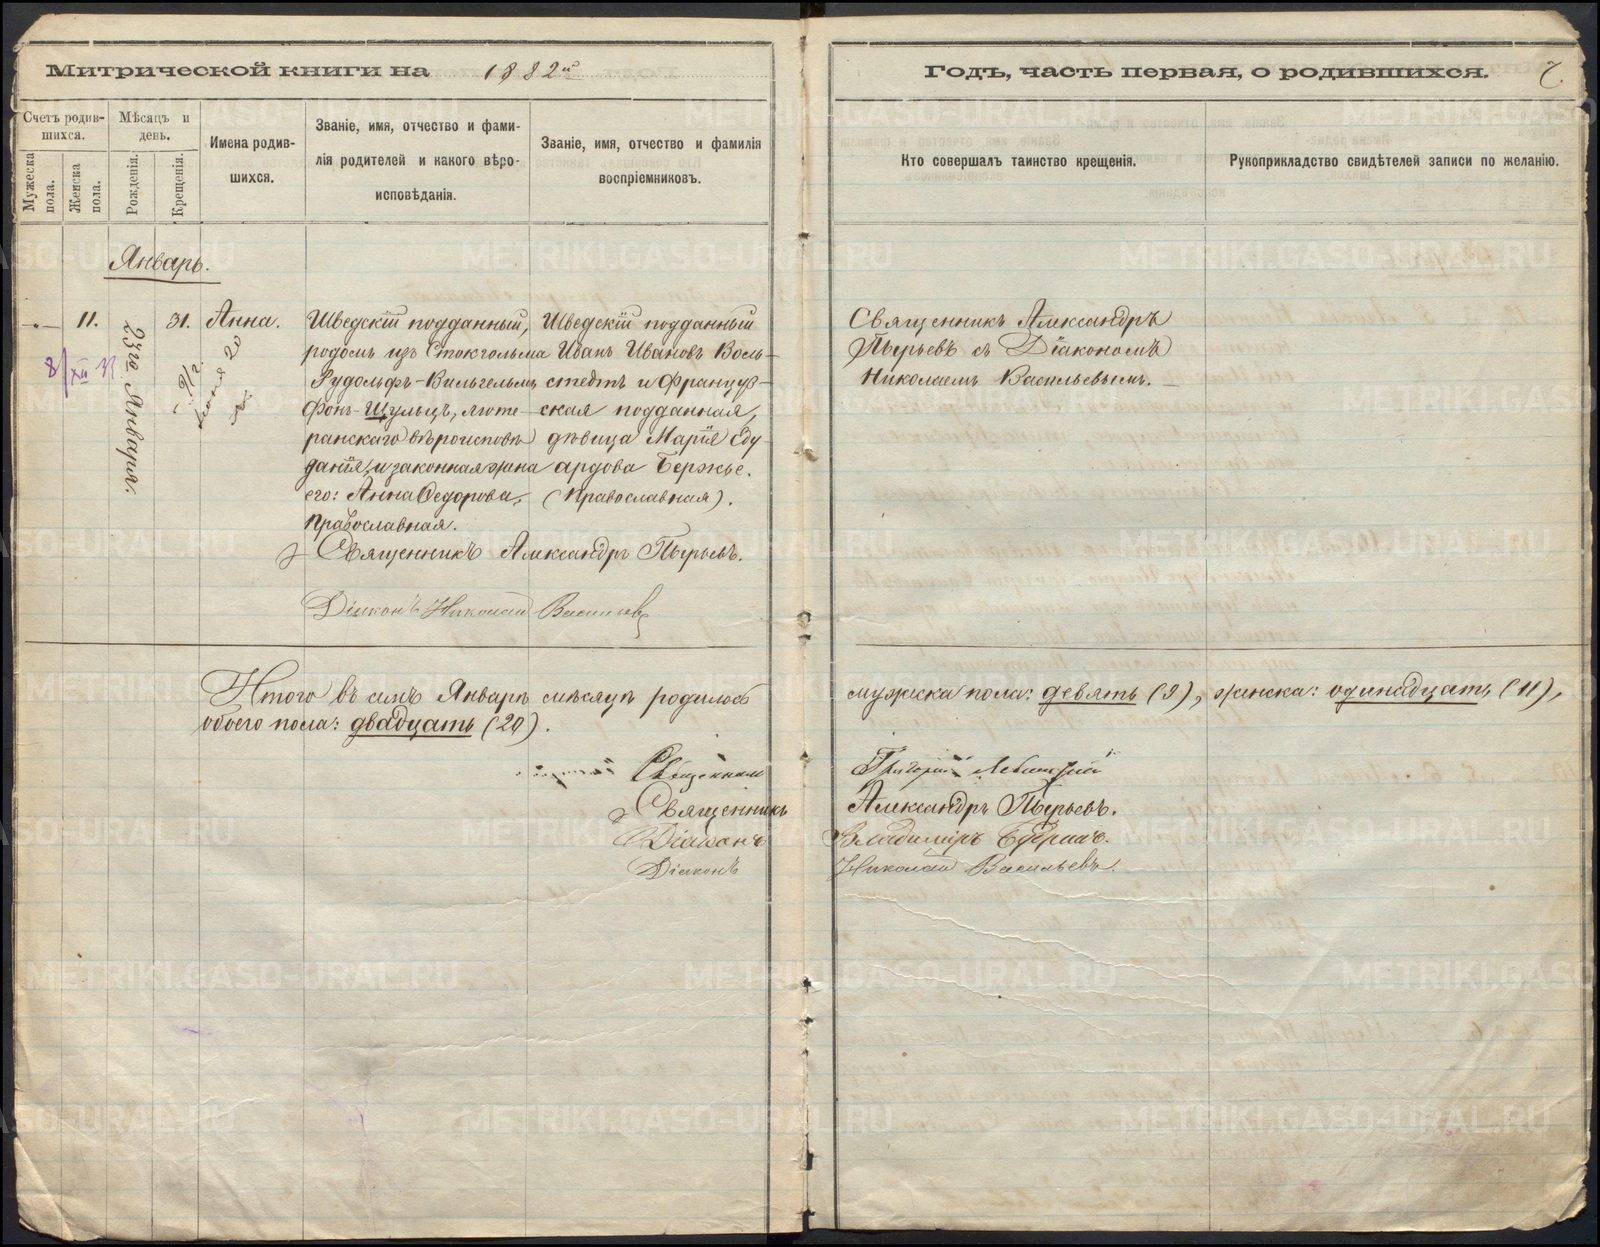 Митрической книги на 1882й
Годъ, часть первая, о родившихся.
7.
Счетъ родив-
шихся.
Мѣсяцъ и
день.
Мужеска
пола.
Женска
пола.
Рожденія.
Крещенія.
Имена родив-
шихся.
Званіе, имя, отчество и фами-
лія родителей и какого вѣро-
исповѣданія.
Званіе, имя, отчество и фамилія
воспріемниковъ.
Кто совершалъ таинство крещенія.
Рукоприкладство свидѣтелей записи по желанію.
Январь.
11.
23го Января.
31.
Анна.
Шведскій подданный,
родомъ изъ Стокгольма
Рудольфъ-Вильгельмъ
фонъ-Шульцъ, люте-
ранскаго вѣроисповѣ
данія, и законная жена
его: Анна Федорова,
православная.
Шведскій подданный
Иванъ Ивановъ Воль-
стедтъ и Француз-
ская подданная,
дѣвица Марія Эду-
ардова Бержье.
(Православная).
Священникъ Александръ
Пырьевъ съ Діакономъ
Николаемъ Васильевымъ.
Священникъ Александръ Пырьевъ.
Діаконъ Николай Васильевъ
Итого въ семъ Январѣ мѣсяцѣ родилось
мужеска пола: девять (9), женска: одинадцать (11),
обоего пола: двадцать (20).
Священникъ
Григорій
Священникъ
Александръ Пырьевъ.
Діаконъ
Владиміръ
Діаконъ
Николай Васильевъ.
METRIKI.GASO-URAL.RU